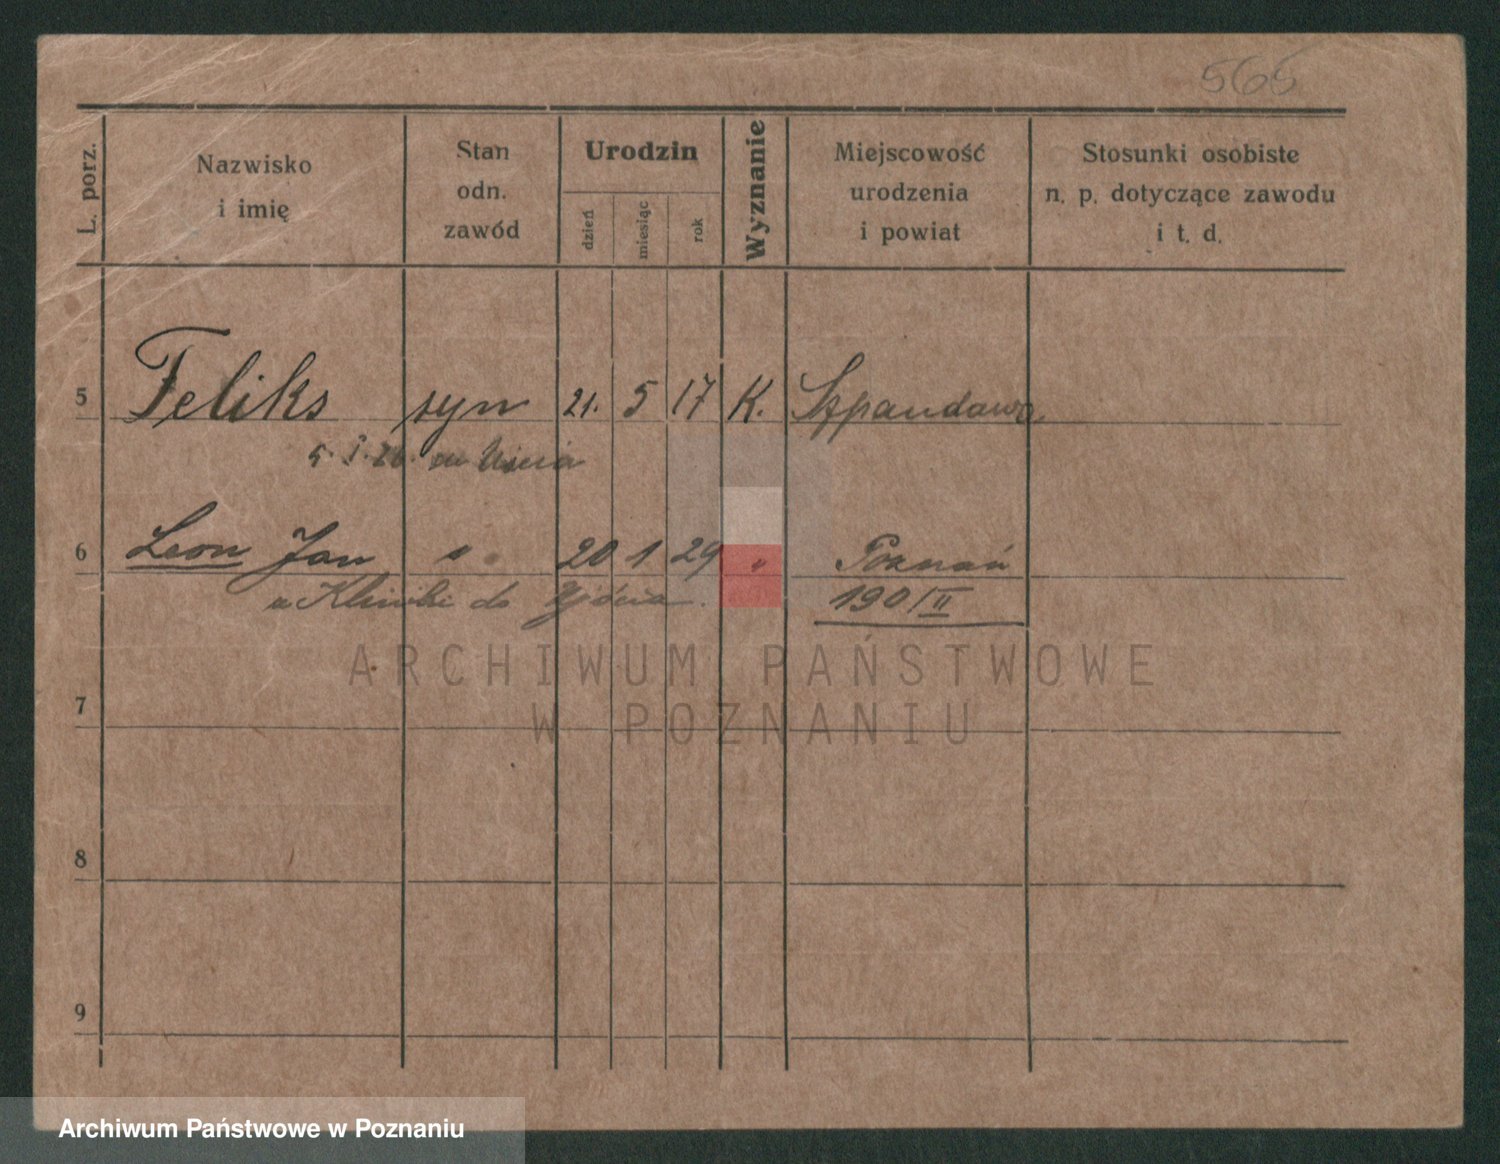 565
L. porz.
Nazwisko
i imię
Stan
odn.
zawód
Urodzin
dzień
miesiąc
rok
Wyznanie
Miejscowość
urodzenia
i powiat
Stosunki osobiste
n. p. dotyczące zawodu
i t. d.
5 Feliks syn 21. 5 17 K. Szpandawa
5. I. 26. do Ujścia
6 Leon Jan s 20 1 29 " Poznań
do 190/II
ARCHIWUM PAŃSTWOWE
W POZNANIU
7
8
9
Archiwum Państwowe w Poznaniu